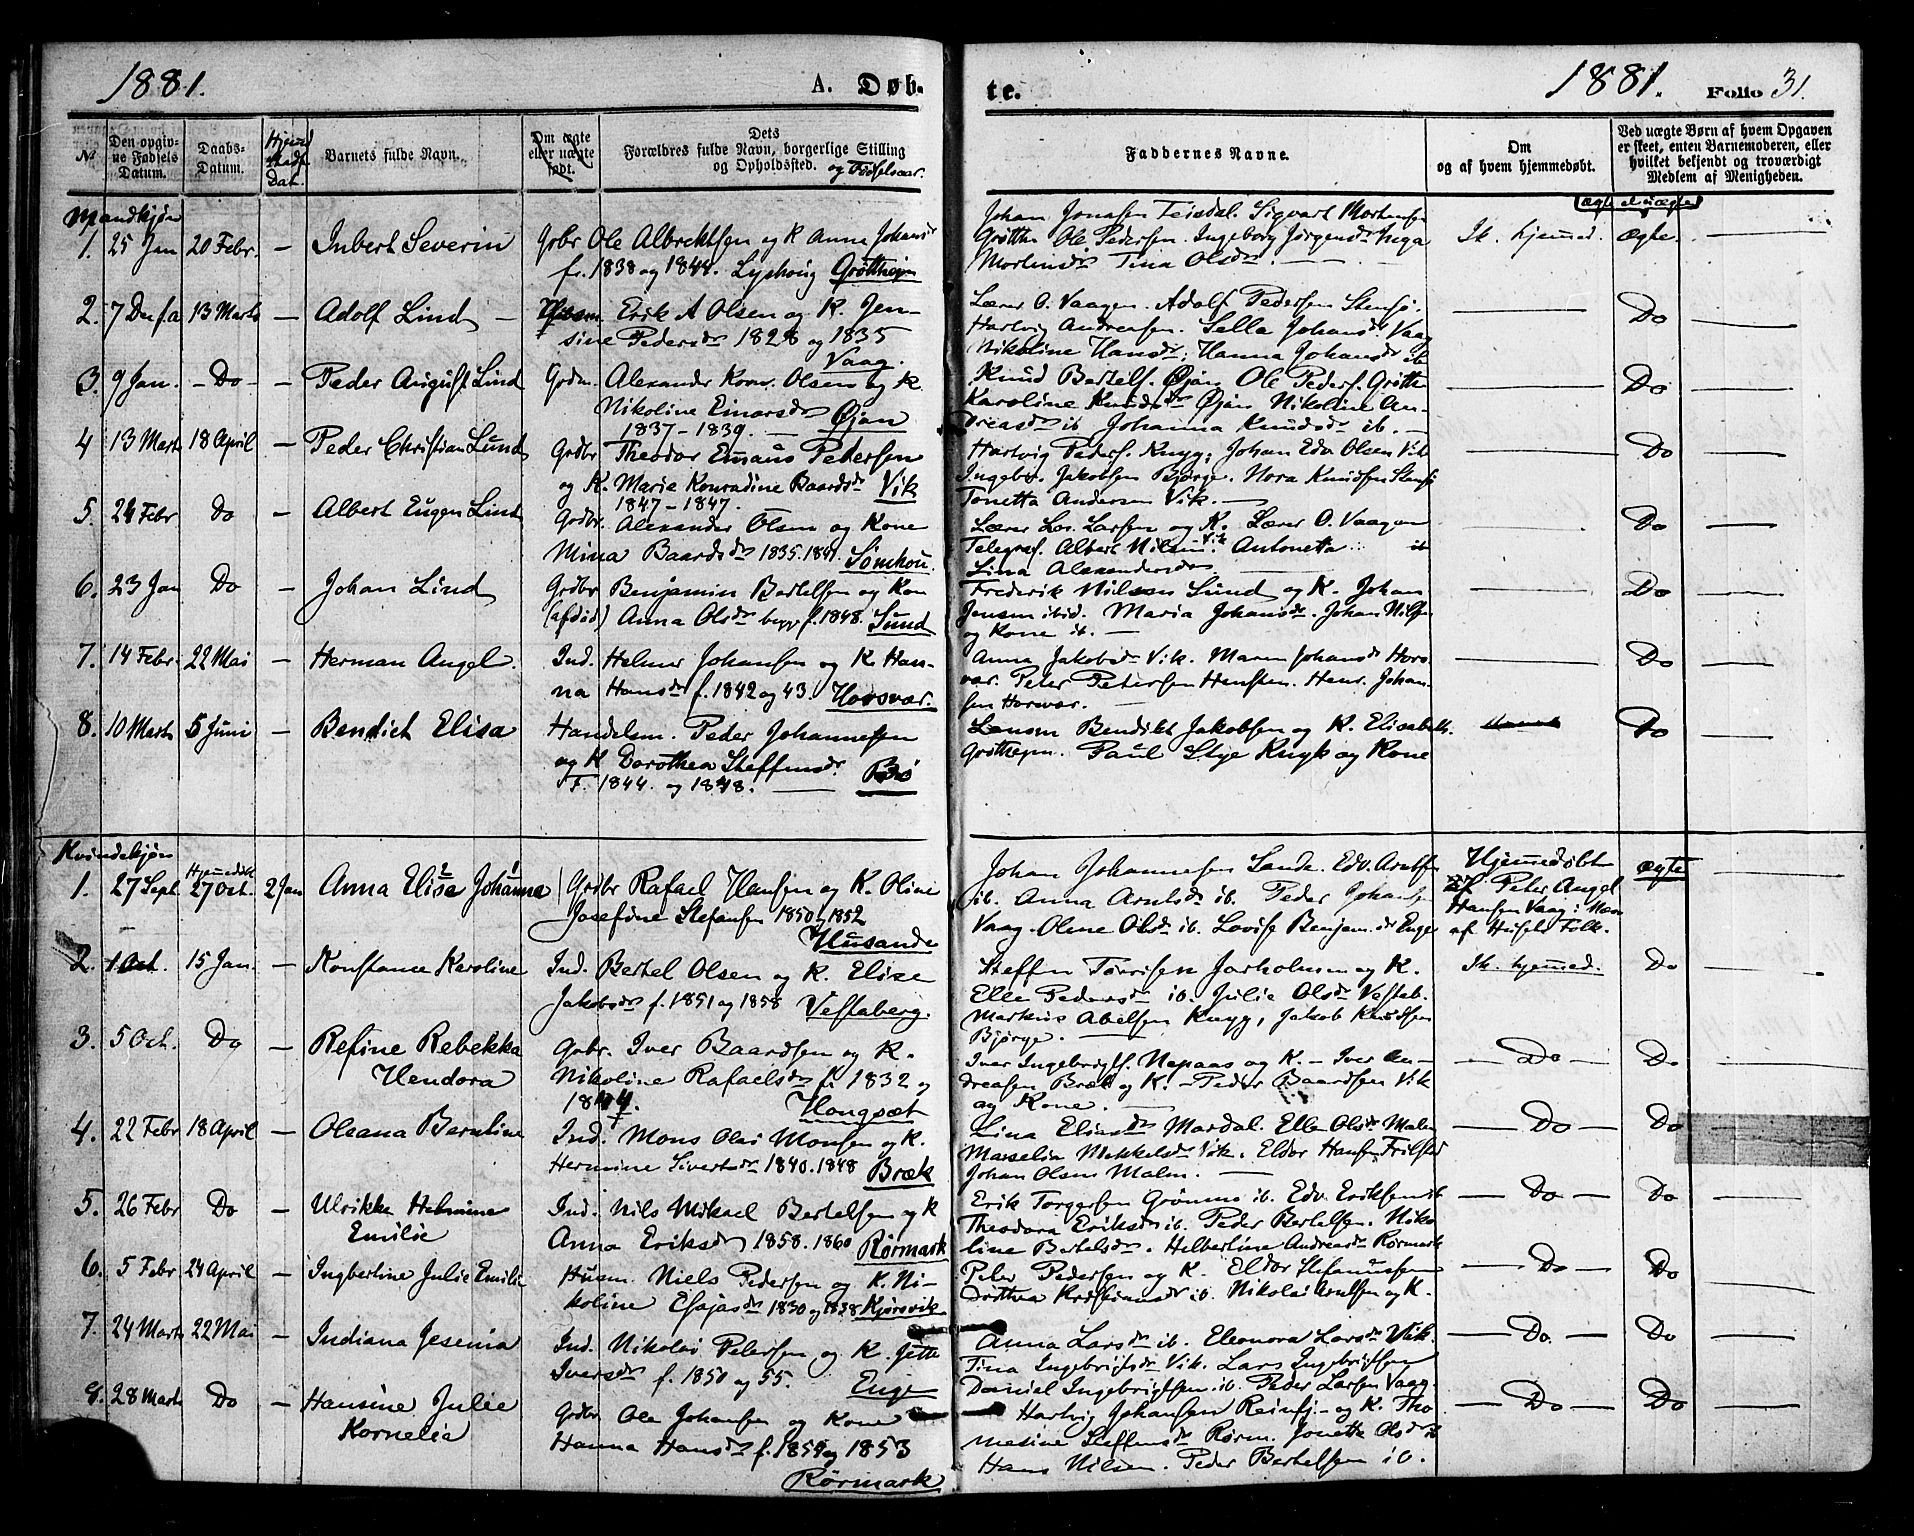 1881.
A. Døb-
te.
1881.
Folio 31.
№
Den opgiv-
ne Fødsels
Datum.
Daabs-
Datum.
Barnets fulde Navn.
Om ægte
eller uægte
født.
Dets
Forældres fulde Navn, borgerlige Stilling
og Opholdssted.
og Fødselsaar.
Faddernes Navne.
Om
og af hvem hjemmedøbt.
Ved uægte Børn af hvem Opgaven
er skeet, enten Barnemoderen, eller
hvilket bekjendt og troværdigt
Medlem af Menigheden.
ægte el uægte
Mandkjøn
1. 25 Jan 20 Febr. — Inbert Severin Grbr Ole Albrektsen og K Anna Johansd
f. 1838 og 1844. Lyshoug Grøtthejm
Johan Jonasen Teisdal. Sigvart Mortensen
Grøtthe Ole Pedersen. Ingeborg Jørgensdr Inga
Mortensdr Tina Olsdr. —
Ik. hjemmed. ægte. —
2. 7 Dec f.a 13 Marts — Adolf Lind — Husm. Erik A Olsen og K. Jen-
sine Pedersdr 1828 og 1835
Vaag.
Lærer O. Vaagen. Adolf Pedersen Stensø.
Hartvig Andreasen. Sella Johansdr Vaag
Nikoline Hansdr; Hanna Johansdr ib
— Do —
3. 9 Jan. — Do — — Peder August Lind Grdm. Alexander Konr. Olsen og K.
Nikoline Einarsdr Øjan
1837 – 1839. —
Knud Bertels. Øjan Ole Peders. Grøtthe
Karoline Knudsdr Øjan Nikoline An-
dreasdr ib Johanna Knudsdr ib. —
— Do —
4 13 Mart 18 April — Peder Christian Lund Grdbr Theodor Emaus Pedersen
og K. Marie Konradine Baardsdr Vik
1847 – 1847.
Hartvig Peders. Knyg; Johan Edv. Olsen Vik
Ingebr. Jakobsen Bjørge. Nora Knudsen Stensø
Tonetta Andersen Vik. —
— Do —
5. 24 Febr Do — Albert Eugen Lind Grdbr. Alexander Olsen og Kone
Mina Baardsdr 1835. 1841. Sømhou.
Lærer Lor. Larsen og K. Lærer O. Vaagen
Telegraf. Albert Nilsen Vik. Antonetta ib
Lina Alexandersdr —
Do —
6. 23 Jan Do — Johan Lind Grdbr Benjamin Bertelsen og Kon
(afdød) Anna Olsdr begge f. 1848. Sund
Frederik Nilsen Sund og K. Johan
Jensen ibid. Maria Johansdr. Johan Nilsen
og Kone ib. —
— Do —
7. 14 Febr. 22 Mai — Herman Angel. Ind. Helmer Johansen og K. Han-
na Hansdr f. 1842 og 43. Hovsvar.
Anna Jakobsdr Vik. Maren Johansdr Hors-
var. Peter Petersen Hensten. Henr. Johan-
sen Horsvar. —
— Do —
8. 10 Marts 5 Juni — Bendict Elisa Handelsm. Peder Johannesen
og K Dorothea Steffensdr.
F. 1844. og 1848. — Brø
Lensm Bendikt Jakobsen og K. Elisabeth
Grøthejm. Paul Stje Knyk og Kone
Do —
Kvindekjøn
1. 27 Sept. Hjemmedøbt 27 Oct. 2 Jan Anna Elise Johanna Grdbr Rafael Hansen og K. Oline
Josefine Stefansen 1850 og 1852
Husande
Johan Johannesen Sande. Edv. Arntsen
ib. Anna Arntsdr ib. Peder Johansen
Vaag. Olene Olsdr ib. Lovise Benjam.dr Enge
Hjemmedøbt
af Peter Angel
Hansen Vaag i Nærv
af Husets Folk.
ægte —
2. 1 Oct. 15 Jan. — Konstance Karoline Ind. Bertel Olsen og K. Elise
Jakobsdr f. 1851 og 1858 Vestaberg.
Steffen Torrisen Jarholmen og K.
Elle Pedersdr ib. Julie Olsdr Vestab.
Markus Abelsen Knyg, Jakob Knudsen
Bjørge. —
Ik. hjemmed. Do —
3. 5 Oct. Do — Refine Rebekka
Hendora
Grbr. Iver Baardsen og K.
Nikoline Rafaelsdr f. 1832 og
1844. Hongsæt
Iver Ingebrigts. Nepaas og K. – Iver An-
dreasen Bræk og K. – Peder Baardsen Vik
og Kone. —
— Do — Do —
4. 22 Febr 18 April — Oleana Berntine Ind. Mons Olai Monsen og K.
Hermine Sivertsdr 1840. 1848 Bræk
Lina Eliasdr Mardal. Ella Olsdr Malm
Marselia Mikkelsdr Vik. Eldor Hansen Frilstad
Johan Olsen Malm. —
— Do — Do
5. 26 Febr Do — Ulrikke Helmine
Emilie
Ind. Nils Mikael Bertelsen og K
Anna Eriksdr 1858. 1860 Rørmark
Erik Torgersen Grønmo ib. Edv. Eriksen ib
Theodora Eriksdr ib. Peder Bertelsen. Niko-
line Bertelsdr. Helbertine Andreasdr Rørmark
— Do — Do —
6. 5 Febr 24 April — Ingbertine Julie Emilie Husm. Niels Pedersen og K. Ni-
koline Esajasdr 1830 og 1838 Kjørsvik
Peter Pedersen og K. Eldor Stefanussen
Dorthea Kristiansdr ib. Nikolai Arntsen og K.
— Do — Do —
7. 24 Marts 22 Mai — Indiana Jesenia Ind. Nikolai Petersen og K. Jette
Iversdr f. 1850 og 55. Enge
Anna Larsdr ib. Eleonora Larsdr Vik.
Tina Ingebrigtsdr Vik. Lars Ingebrigtsen
Daniel Ingebrigtsen ib. Peder Larsen Vaag.
— Do. — Do —
8. 28 Marts Do — Hansine Julie
Kornelia
Grdbr. Ole Johansen og Kone
Hanna Hansdr f. 1854 og 1853
Rørmark
Hartvig Johansen Reinsj- og K. Tho-
mesine Steffensdr Rørm. Jonetta Olsdr ib
Hans Nilsen. Peder Bertelsen ib.
— Do — Do —